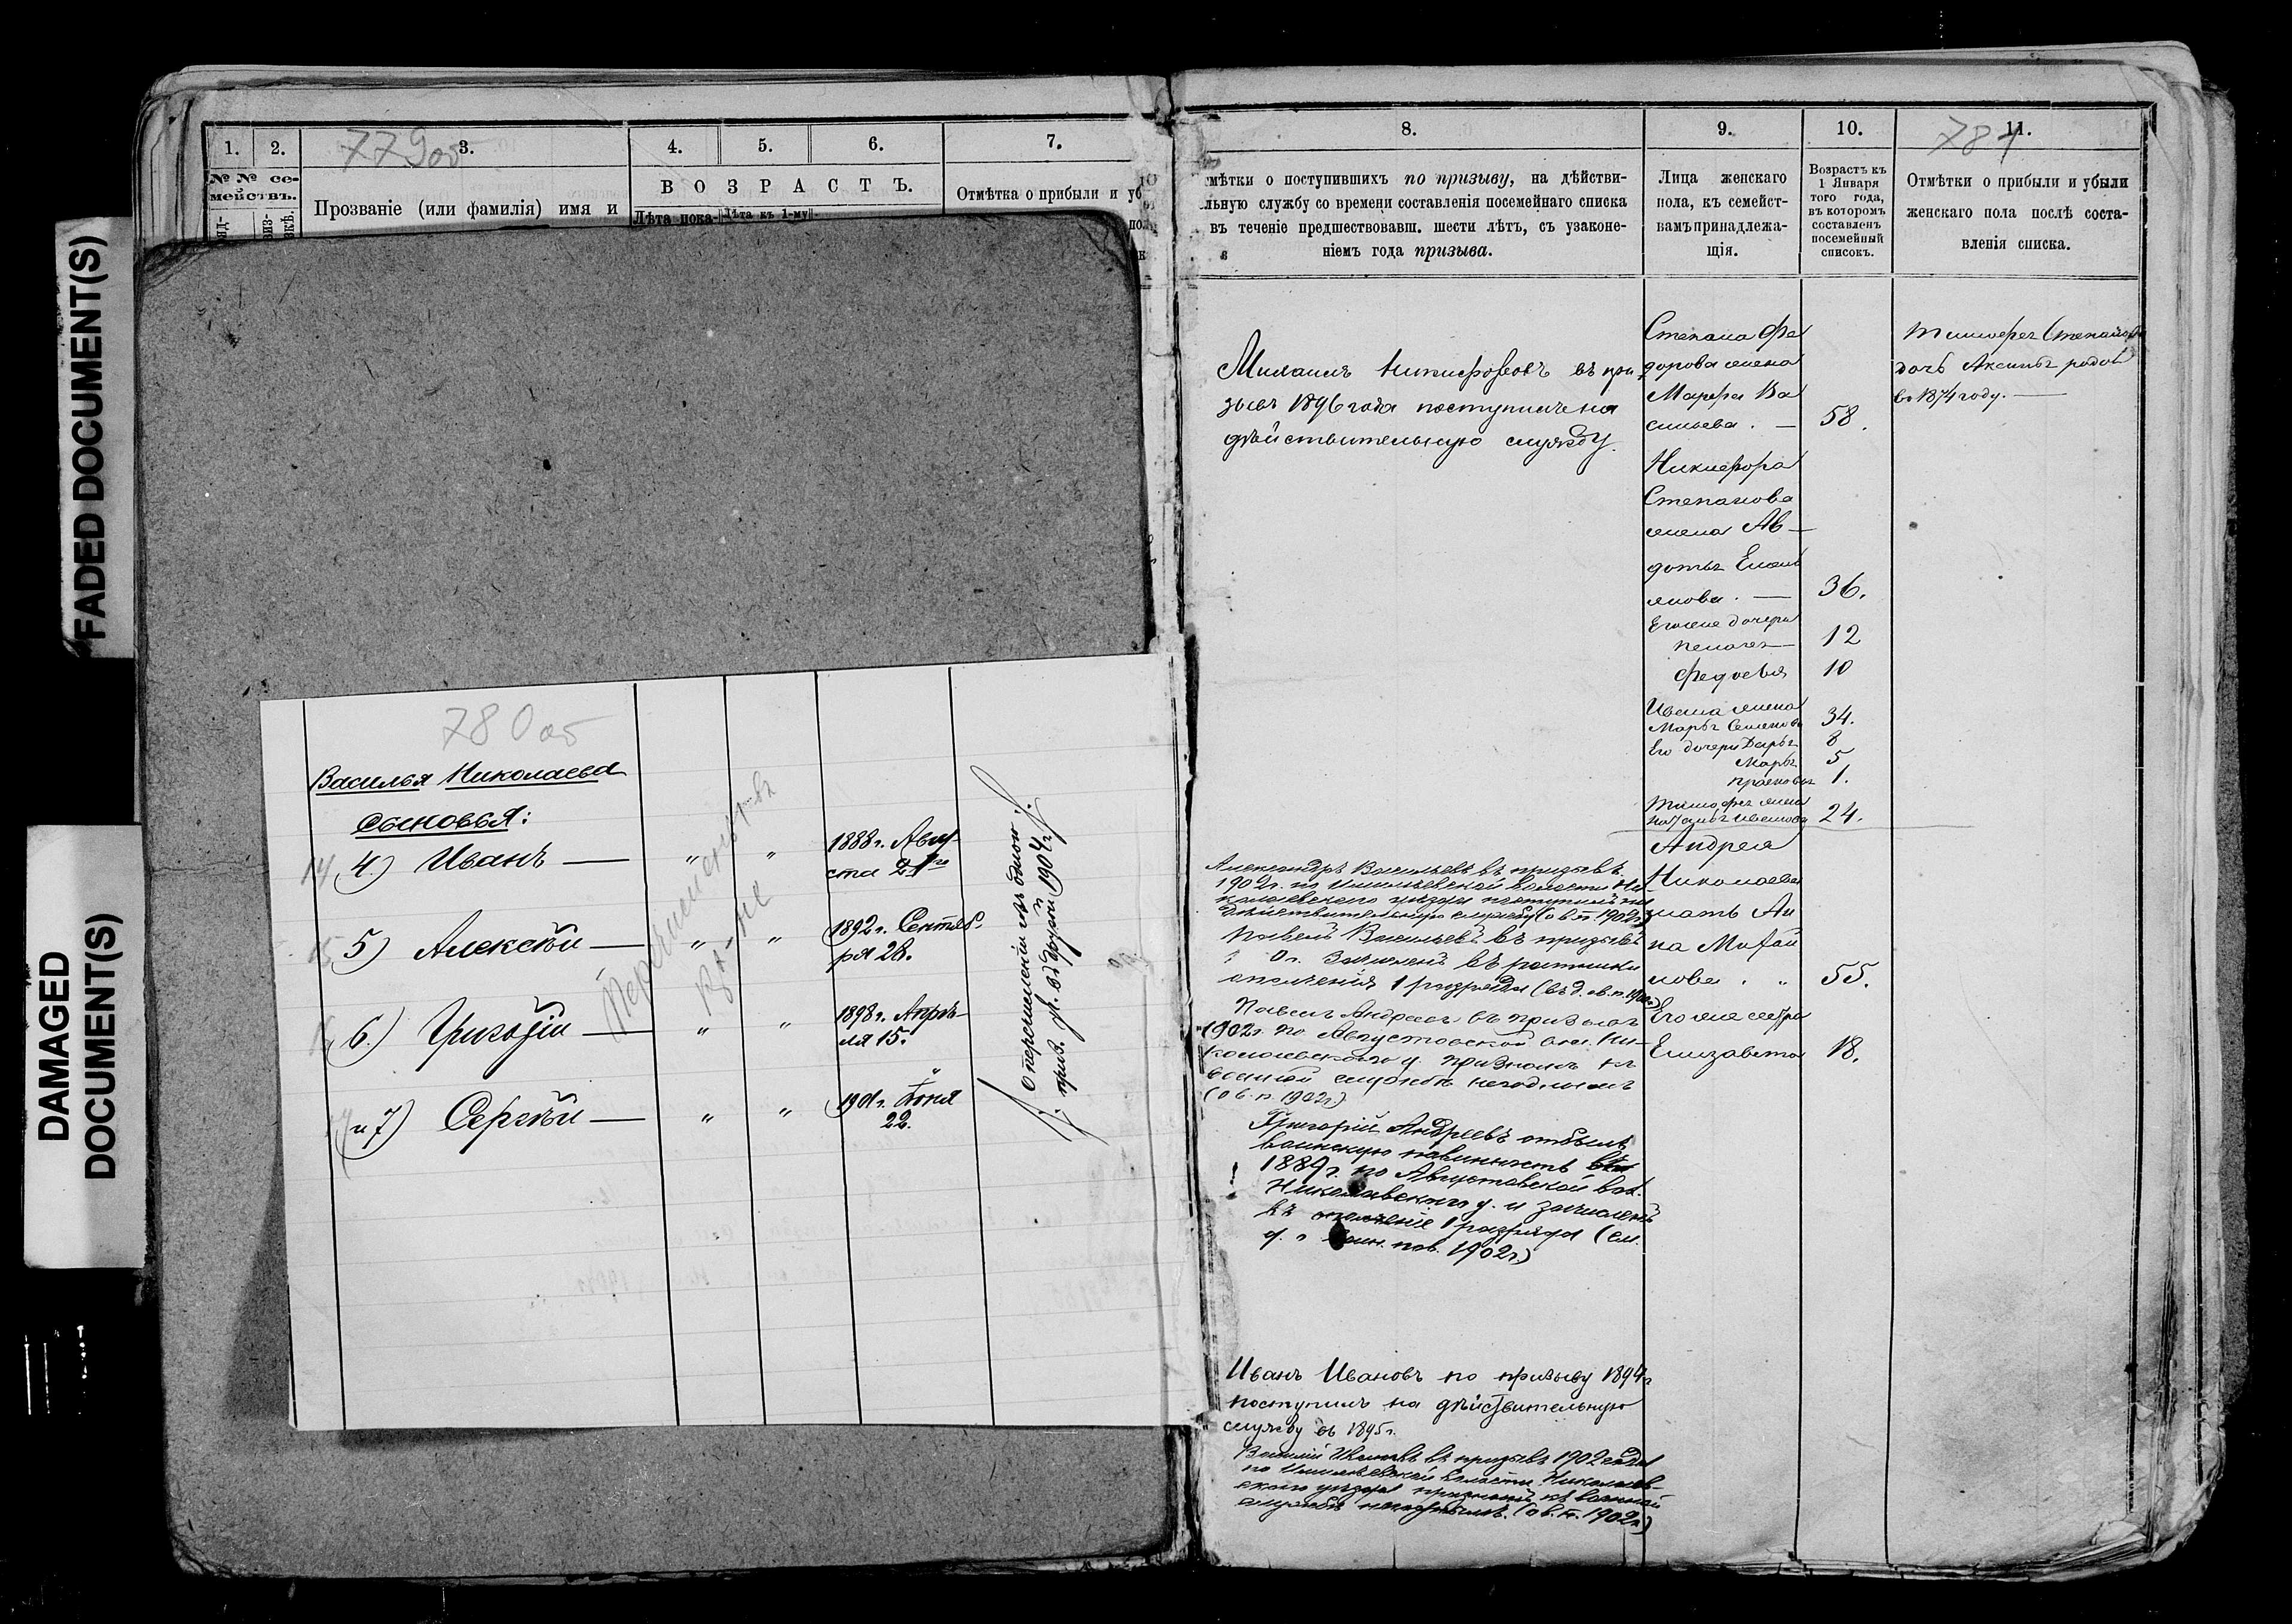 FADED DOCUMENT(S)
DAMAGED
DOCUMENT(S)
1. 2. 3. 4. 5. 6. 7.
779об
№ № се-
мействъ.
Прозваніе (или фамилія) имя и
ВОЗРАСТЪ.
Лѣта пока-
Лѣта къ 1-му
Отмѣтка о прибыли и уб
780об
Василья Николаева
сыновья:
14 4.) Иванъ — „ „ 1888 г. Авгу-
ста 21го
15 5) Алексѣй — „ „ 1892 г. Сентяб-
ря 28.
6.) Григорій — „ „ 1898 г. Апрѣ-
ля 15.
и 7) Сергѣй — „ „ 1901 г. Іюня
22.
О перечисленіи изъ одного
приз. уч. въ другой 1904 г.
8. 9. 10. 11.
781
мѣтки о поступившихъ по призыву, на дѣйстви-
льную службу со времени составленія посемейнаго списка
въ теченіе предшествовавш. шести лѣтъ, съ узаконе-
ніемъ года призыва.
Лица женскаго
пола, къ семейст-
вамъ принадлежа-
щія.
Возрастъ къ
1 Января
того года,
въ которомъ
составленъ
посемейный
списокъ.
Отмѣтки о прибыли и убыли
женскаго пола послѣ соста-
вленія списка.
Михаилъ Никифоровъ въ при
зывъ 1896 года поступилъ на
дѣйствительную службу.
Степана Фе
дорова жена
Марфа Ва
сильева. — 58.
Никифора
Степанова
жена Ав—
дотья Емель
янова. — 36.
Его же дочери
Пелагея — 12
Федосья 10
Ивана жена
Марья Семенова 34.
Его дочери Дарья 8
Марья 5
Прасковья 1.
Тимофея жена
Наталья Иванова 24.
Тимофея Степанова
дочь Аксинья родов
въ 1874 году. —
Андрея
Николаева
мать Ан
на Матвѣ
нова. „ 55.
Его же сестра
Елизавета 18.
Александръ Васильевъ въ призывъ
1902 г. по волости Ни
колаевскаго уѣзда поступилъ на
дѣйствительную службу (о в. п. 1902 г.)
Павелъ Васильевъ въ призывъ
зачисленъ въ ратники
ополченія 1 разряда
Павелъ Андреевъ въ призывъ
1902 г. по Августовской вол. Ни-
колаевскаго у. признанъ къ
военной службѣ негоднымъ
(о в. п. 1902 г.)
Григорій Андреевъ отбылъ
воинскую повинность
1889 г. по Августовской вол.
Николаевскаго у. и зачисленъ
въ ополченіе 1 разряда (см.
д. о воин. пов. 1902 г.)
Иванъ Ивановъ по призыву 1894 г
поступилъ на дѣйствительную
службу съ 1895 г.
Василій Ивановъ въ призывъ 1902 года
по волости Николаев-
скаго уѣзда признанъ къ военной
службѣ негоднымъ. (о в. п. 1902 г.)